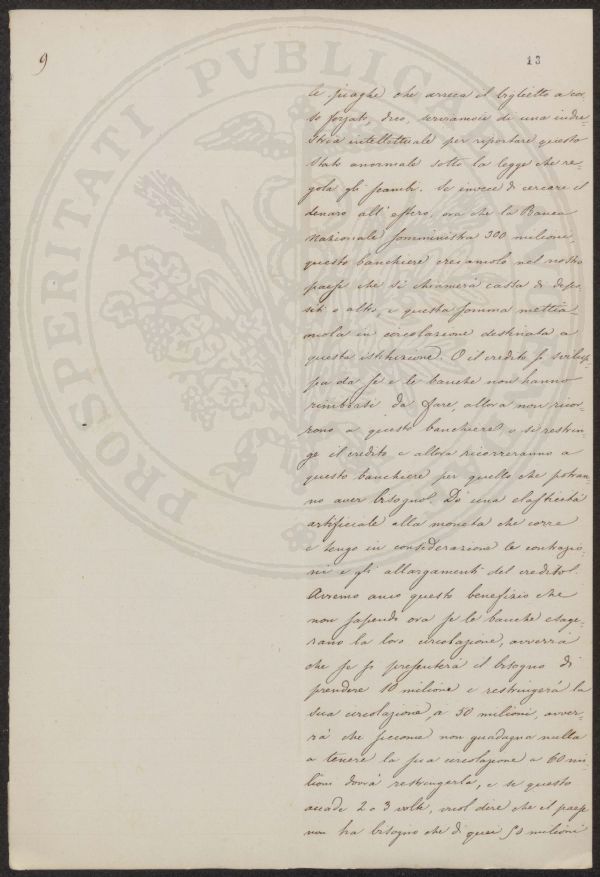 9
13
le piaghe che arreca il biglietto a cor-
so forzato, dico, serviamoci di una indu-
stria intellettuale per riportare questo
stato anormale sotto la legge che re-
gola gli scambi. Se invece di cercare il
denaro all'estero, ora che la Banca
Nazionale somministra 300 milioni,
questo banchiere creiamolo nel nostro
paese che si chiamerà cassa di depo-
siti o altro, e questa somma mettia-
mola in circolazione destinata a
questa istituzione. O il credito si svilup-
pa da se e le banche non hanno
rimborsi da fare, allora non ricor-
rono a questo banchiere, o si restrin-
ge il credito e allora ricorreranno a
questo banchiere per quello che potran-
no aver bisogno. Dò una elasticità
artificiale alla moneta che corre
e tengo in considerazione le contrazio-
ni e gli allargamenti del credito.
Avremo anco questo benefizio che
non sapendo ora se le banche esage-
rano la loro circolazione, avverrà
che se si presenterà il bisogno di
prendere 10 milioni e restringerà la
sua circolazione, a 50 milioni, avver-
rà che siccome non guadagna nulla
a tenere la sua circolazione a 60 mi-
lioni dovrà restringerla, e se questo
accade 2 o 3 volte, vuol dire che il paese
non ha bisogno che di quei 50 milioni
PROSPERITATI PVBLICAE